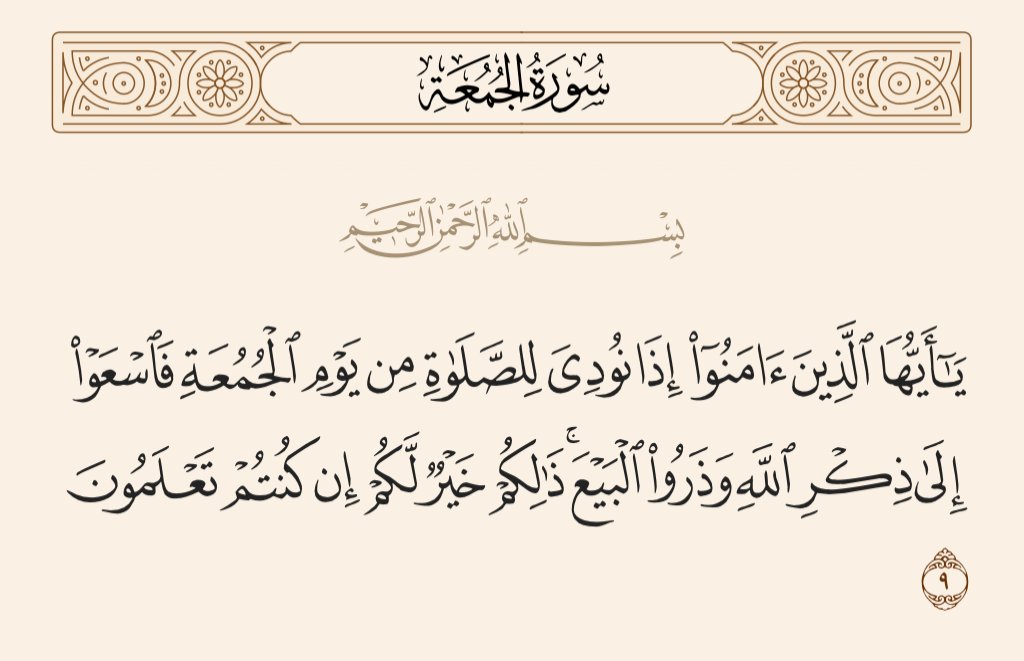 سُورَةُ الجُمُعَةِ
بِسْمِ ٱللَّهِ ٱلرَّحْمَٰنِ ٱلرَّحِيمِ
يَـٰٓأَيُّهَا ٱلَّذِينَ ءَامَنُوٓا۟ إِذَا نُودِىَ لِلصَّلَوٰةِ مِن يَوْمِ ٱلْجُمُعَةِ فَٱسْعَوْا۟
إِلَىٰ ذِكْرِ ٱللَّهِ وَذَرُوا۟ ٱلْبَيْعَ ۚ ذَٰلِكُمْ خَيْرٌ لَّكُمْ إِن كُنتُمْ تَعْلَمُونَ
٩